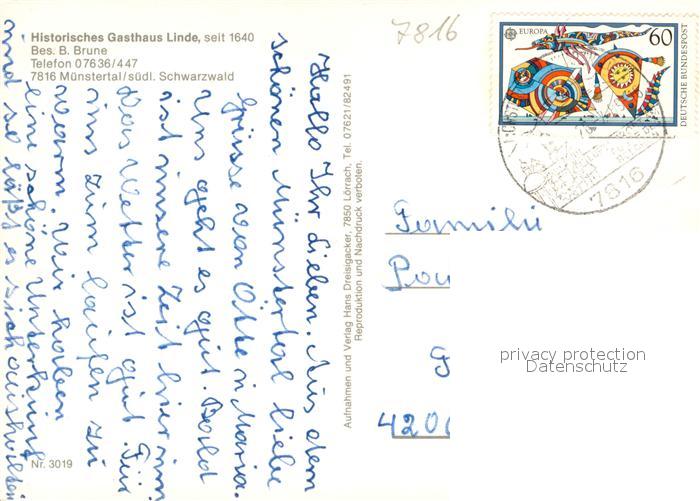 Historisches Gasthaus Linde, seit 1640
Bes. B. Brune
Telefon 07636/447
7816 Münstertal/südl. Schwarzwald
7816
EUROPA
60
DEUTSCHE BUNDESPOST
7816
Hallo Ihr Lieben. Aus dem
schönen Münstertal liebe
Grüsse von Otto u Maria.
Uns geht es gut. Bald
ist unsere Zeit hier um
Das Wetter ist gut. Für
uns zum laufen zu
warm. Wir haben
eine schöne Unterkunft
und so läßt es sich aushalten
Aufnahmen und Verlag Hans Dreisigacker, 7850 Lörrach, Tel. 07621/82491
Reproduktion und Nachdruck verboten.
Familie
privacy protection
Datenschutz
Nr. 3019